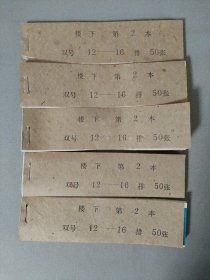 楼下 第2本
双号 12——16 排 50张
楼下 第2本
双号 12——16 排 50张
楼下 第2本
双号 12——16 排 50张
楼下 第2本
双号 12——16 排 50张
楼下 第2本
双号 12——16 排 50张